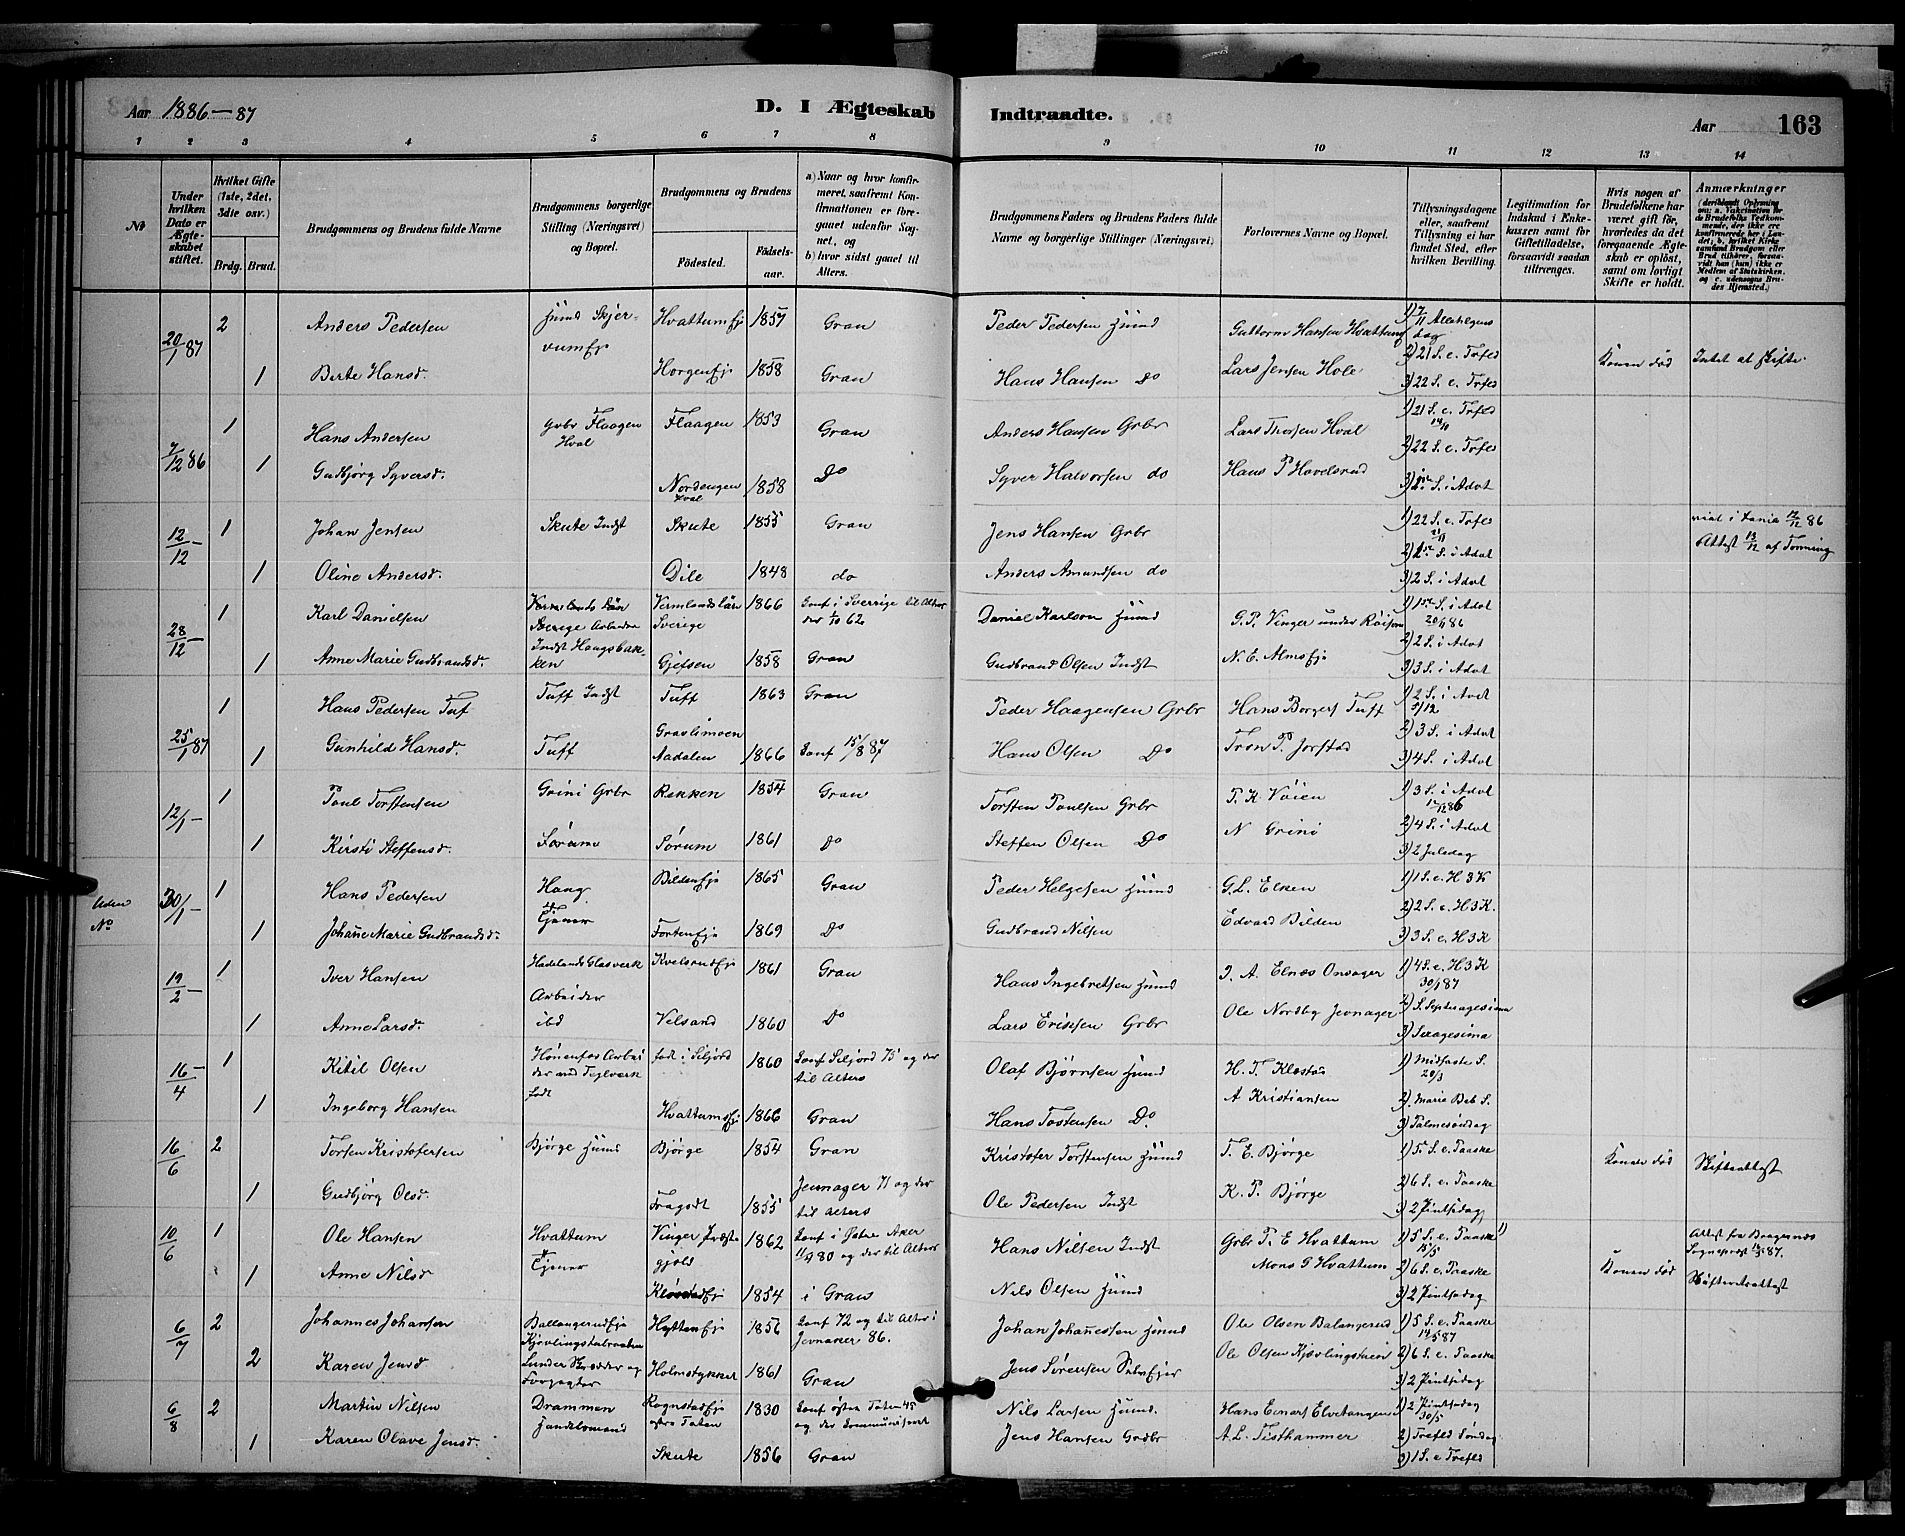 Aar 1886-87
D. I Ægteskab Indtraadte.
Aar 163
1 2 3 4 5 6 7 8 9 10 11 12 13 14
No
Under hvilken Dato er Ægteskabet stiftet.
Hvilket Gifte (1ste, 2det, 3die osv.)
Brdg. Brud.
Brudgommens og Brudens fulde Navne
Brudgommens borgerlige Stilling (Næringsvei) og Bopæl.
Brudgommens og Brudens
Födested. Födsels-aar.
a) Naar og hvor konfirmeret, saafremt Konfirmationen er foregaaet udenfor Sognet, og
b) hvor sidst gaaet til Alters.
Brudgommens Faders og Brudens Faders fulde Navne og borgerlige Stillinger (Næringsvei)
Forlovernes Navne og Bopæl.
Tillysningsdagene eller, saafremt Tillysning ei har fundet Sted, efter hvilken Bevilling.
Legitimation for Indskud i Enkekassen samt for Giftetilladelse, forsaavidt saadan tiltrænges.
Hvis nogen af Brudefolkene har været gift før, hvorledes da det foregaaende Ægteskab er oplöst, samt om lovligt Skifte er holdt.
Anmærkninger
20/1 87 2 Anders Pedersen Huusd Skjervumeje Hvattumeje 1857 Gran Peder Pedersen Huusd Guttorm Hansen Hvattum 1) 7/11 Allehelgensdag
1 Berte Hansd. Horgeneje 1858 Gran Hans Hansen Do Lars Jensen Hole 2) 21 S. e. Trefed Konen død Intet at skifte
3) 22 S. e. Trefed
7/12 86 1 Hans Andersen Gbr Flaagen Hval Flaagen 1853 Gran Anders Hansen Grbr Lars Thorsen Hval 1) 21 S. e. Trefed 14/11
2) 22 S. e. Trefed
1 Gudbjørg Syversd. Nordengen Hval 1858 Do Syver Halvorsen do Hans P Hovelsrud 3) 1ste S. i Advt
12/12 - 1 Johan Jensen Skute Indst Skute 1855 Gran Jens Hansen Grbr 1) 22 S. e. Trefed 21/11 viet i Land 12/12 86
2) 1ste S. i Advt Attest 13/12 af Tønning
1 Oline Andersd. Dile 1848 do Anders Amundsen do 3) 2 S. i Advt
28/12 - 1 Karl Danielsen Vermlands Län Sverige Arbeider Vermlandslän Sverige 1866 Conf i Sverrige til Alter der 1/10 62 Daniel Karlson Huusd G. P. Vinger under Røisum 1) 1ste S. i Advt 20/11 86
2) 2 S. i Advt
1 Anne Marie Gudbrandsd. Indst Haugsbakken Gjefsen 1858 Gran Gudbrand Olsen Indst N. E. Almseje 3) 3 S. i Advt
25/1 87 1 Hans Pedersen Tuf Tuff Indst Tuff 1863 Gran Peder Haagensen Grbr Hans Borgers Tuff 1) 2 S. i Advt 5/12
2) 3 S. i Advt
1 Gunhild Hansd. Tuff Gravlimoen Aadalen 1866 Conf 15/8 87 Hans Olsen Do Tron P. Jorstad 3) 4 S. i Advt
12/1 - 1 Poul Torstensen Grini Grbr Rekken 1854 Gran Torsten Poulsen Grbr P. K Vøien 1) 3 S. i Advt 12/12 86
2) 4 S. i Advt
1 Kirsti Steffensd. Sørum Sørum 1861 Do Steffen Olsen Do N Grini 3) 2 Juledag
Uden No 30/1 - 1 Hans Pedersen Haug Tjener Bildeneje 1865 Gran Peder Helgesen Huusd G. L. Elken 1) 1 S. e. H3K
2) 2 S. e. H3K.
1 Johane Marie Gudbrandsd. Forteneje 1869 Do Gudbrand Nilsen Edvard Bilden 3) 3 S. e. H3K
19/2 - 1 Iver Hansen Hadelands Glasverk Arbeider Kvelsrudeje 1861 Gran Hans Ingebretsen Huusd J. A. Elnæs Onsager 1) 4 S. e. H3K 30/1 87
2) S. Septuagesima
1 Anne Larsd. ibd Velsand 1860 Do Lars Eriksen Grbr Ole Nordby Jevnager 3) Sexagesima
16/4 - 1 Kitil Olsen Hønenfos Arbeider ved Teglverk født født i Siljord 1860 Conf Siljord 75 og der til Alters Olaf Bjørnsen Huusd H. T. Klæstad 1) Midfaste S. 20/3
2) Maria Beb S.
1 Ingeborg Hansen Hvattumseje 1866 Gran Hans Tostensen Do. A Kristiansen 3) Palmesøndag
16/6 2 Torsen Kristofersen Bjørge Huusd Bjørge 1854 Gran Kristofer Torstensen Huusd T. E. Bjørge 1) 5 S. e. Paaske Konen død Skifteattest
2) 6 S. e. Paaske
1 Gudbjørg Olsd. Fragodt 1855 Jevnager 71 og der til Alters Ole Pedersen Indst K. P. Bjørge 3) 2 Pintsedag
10/6 1 Ole Hansen Hvattum Tjener Vinger Præstegjeld 1862 Conf i Østre Aker 11/4 80 og der til Alters Hans Nilsen Indst Grbr P. E Hvattum 1) 5 S. e. Paaske 15/5 Attest fra Bragernæs Sognepræst 12/5 87.
2) 6 S. e. Paaske
1 Anne Nilsd Klæstadeje 1854 i Gran Nils Olsen Huusd Mons G Hvattum 3) 2 Pintsedag Konen død Skifteretsattest
6/7 2 Johannes Johansen Ballangerudeje Hytteneje 1856 Conf 72 og til Alter i Jevnaker 86. Johan Johanessen Huusd Ole Olsen Balangerud 1) 5 S. e. Paaske 14/5 87
2 Karen Jensd Lunder Skrædder og Forpagter Holmstykket 1861 Gran Jens Sørensen Selveier Ole Olsen Kjævlingstueen 2) 6 S. e. Paaske
3) 2 Pintsedag
6/8 2 Martin Nilsen Drammen Handelsmand Rognstadeje østre Toten 1830 Conf østre Toten 45 og der Communiseret Nils Larsen Huusd. Hans Einars Elvetangen 1) 2 Pintsedag 30/5
2) Trefd Søndag
1 Karen Olave Jensd. Skute 1856 Gran Jens Hansen Grdbr A. L. Tisthammer 3) 1 S. e Trefd